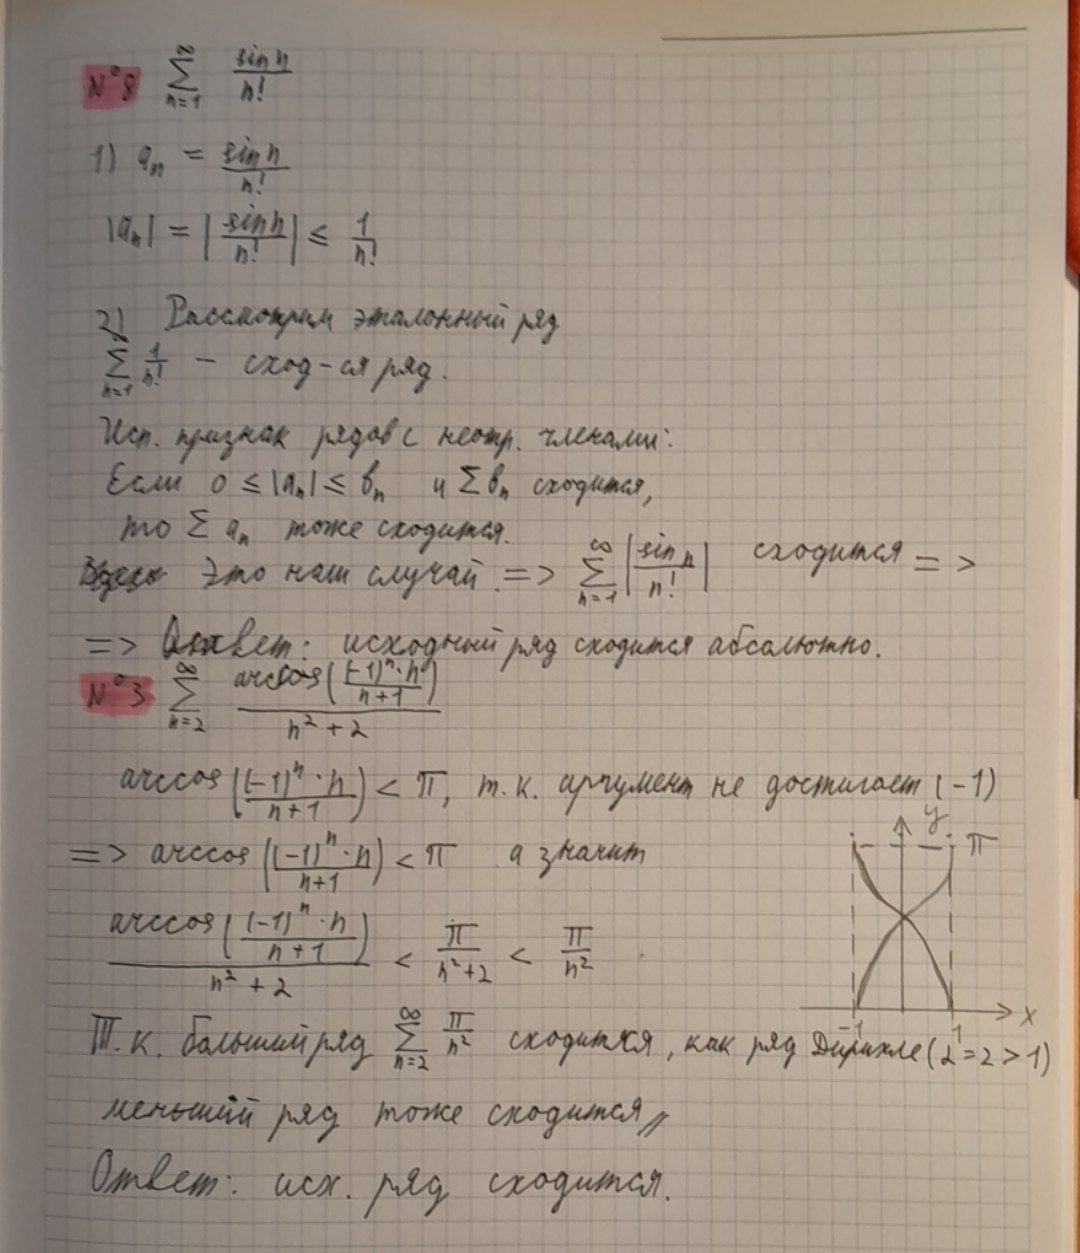 №8 ∑_{n=1}^{∞} sin n / n!
1) aₙ = sin n / n!
|aₙ| = |sin n / n!| ≤ 1 / n!
2) Рассмотрим эталонный ряд
∑_{n=1}^{∞} 1/n! – сход-ся ряд.
Исп. признак рядов с неотр. членами:
Если 0 ≤ |aₙ| ≤ bₙ и ∑ bₙ сходится,
то ∑ aₙ тоже сходится.
Это наш случай. => ∑_{n=1}^{∞} |sin n / n!| сходится =>
=> Ответ: исходный ряд сходится абсолютно.
№3 ∑_{n=2}^{∞} arccos((-1)ⁿ · n / (n+1)) / (n² + 2)
arccos((-1)ⁿ · n / (n+1)) < π, т.к. аргумент не достигает (-1)
=> arccos((-1)ⁿ · n / (n+1)) < π а значит
y
π
arccos((-1)ⁿ · n / (n+1)) / (n² + 2) < π / (n²+2) < π / n²
-1 1 x
Т.к. больший ряд ∑_{n=2}^{∞} π / n² сходится, как ряд Дирихле (α = 2 > 1)
меньший ряд тоже сходится //
Ответ: исх. ряд сходится.